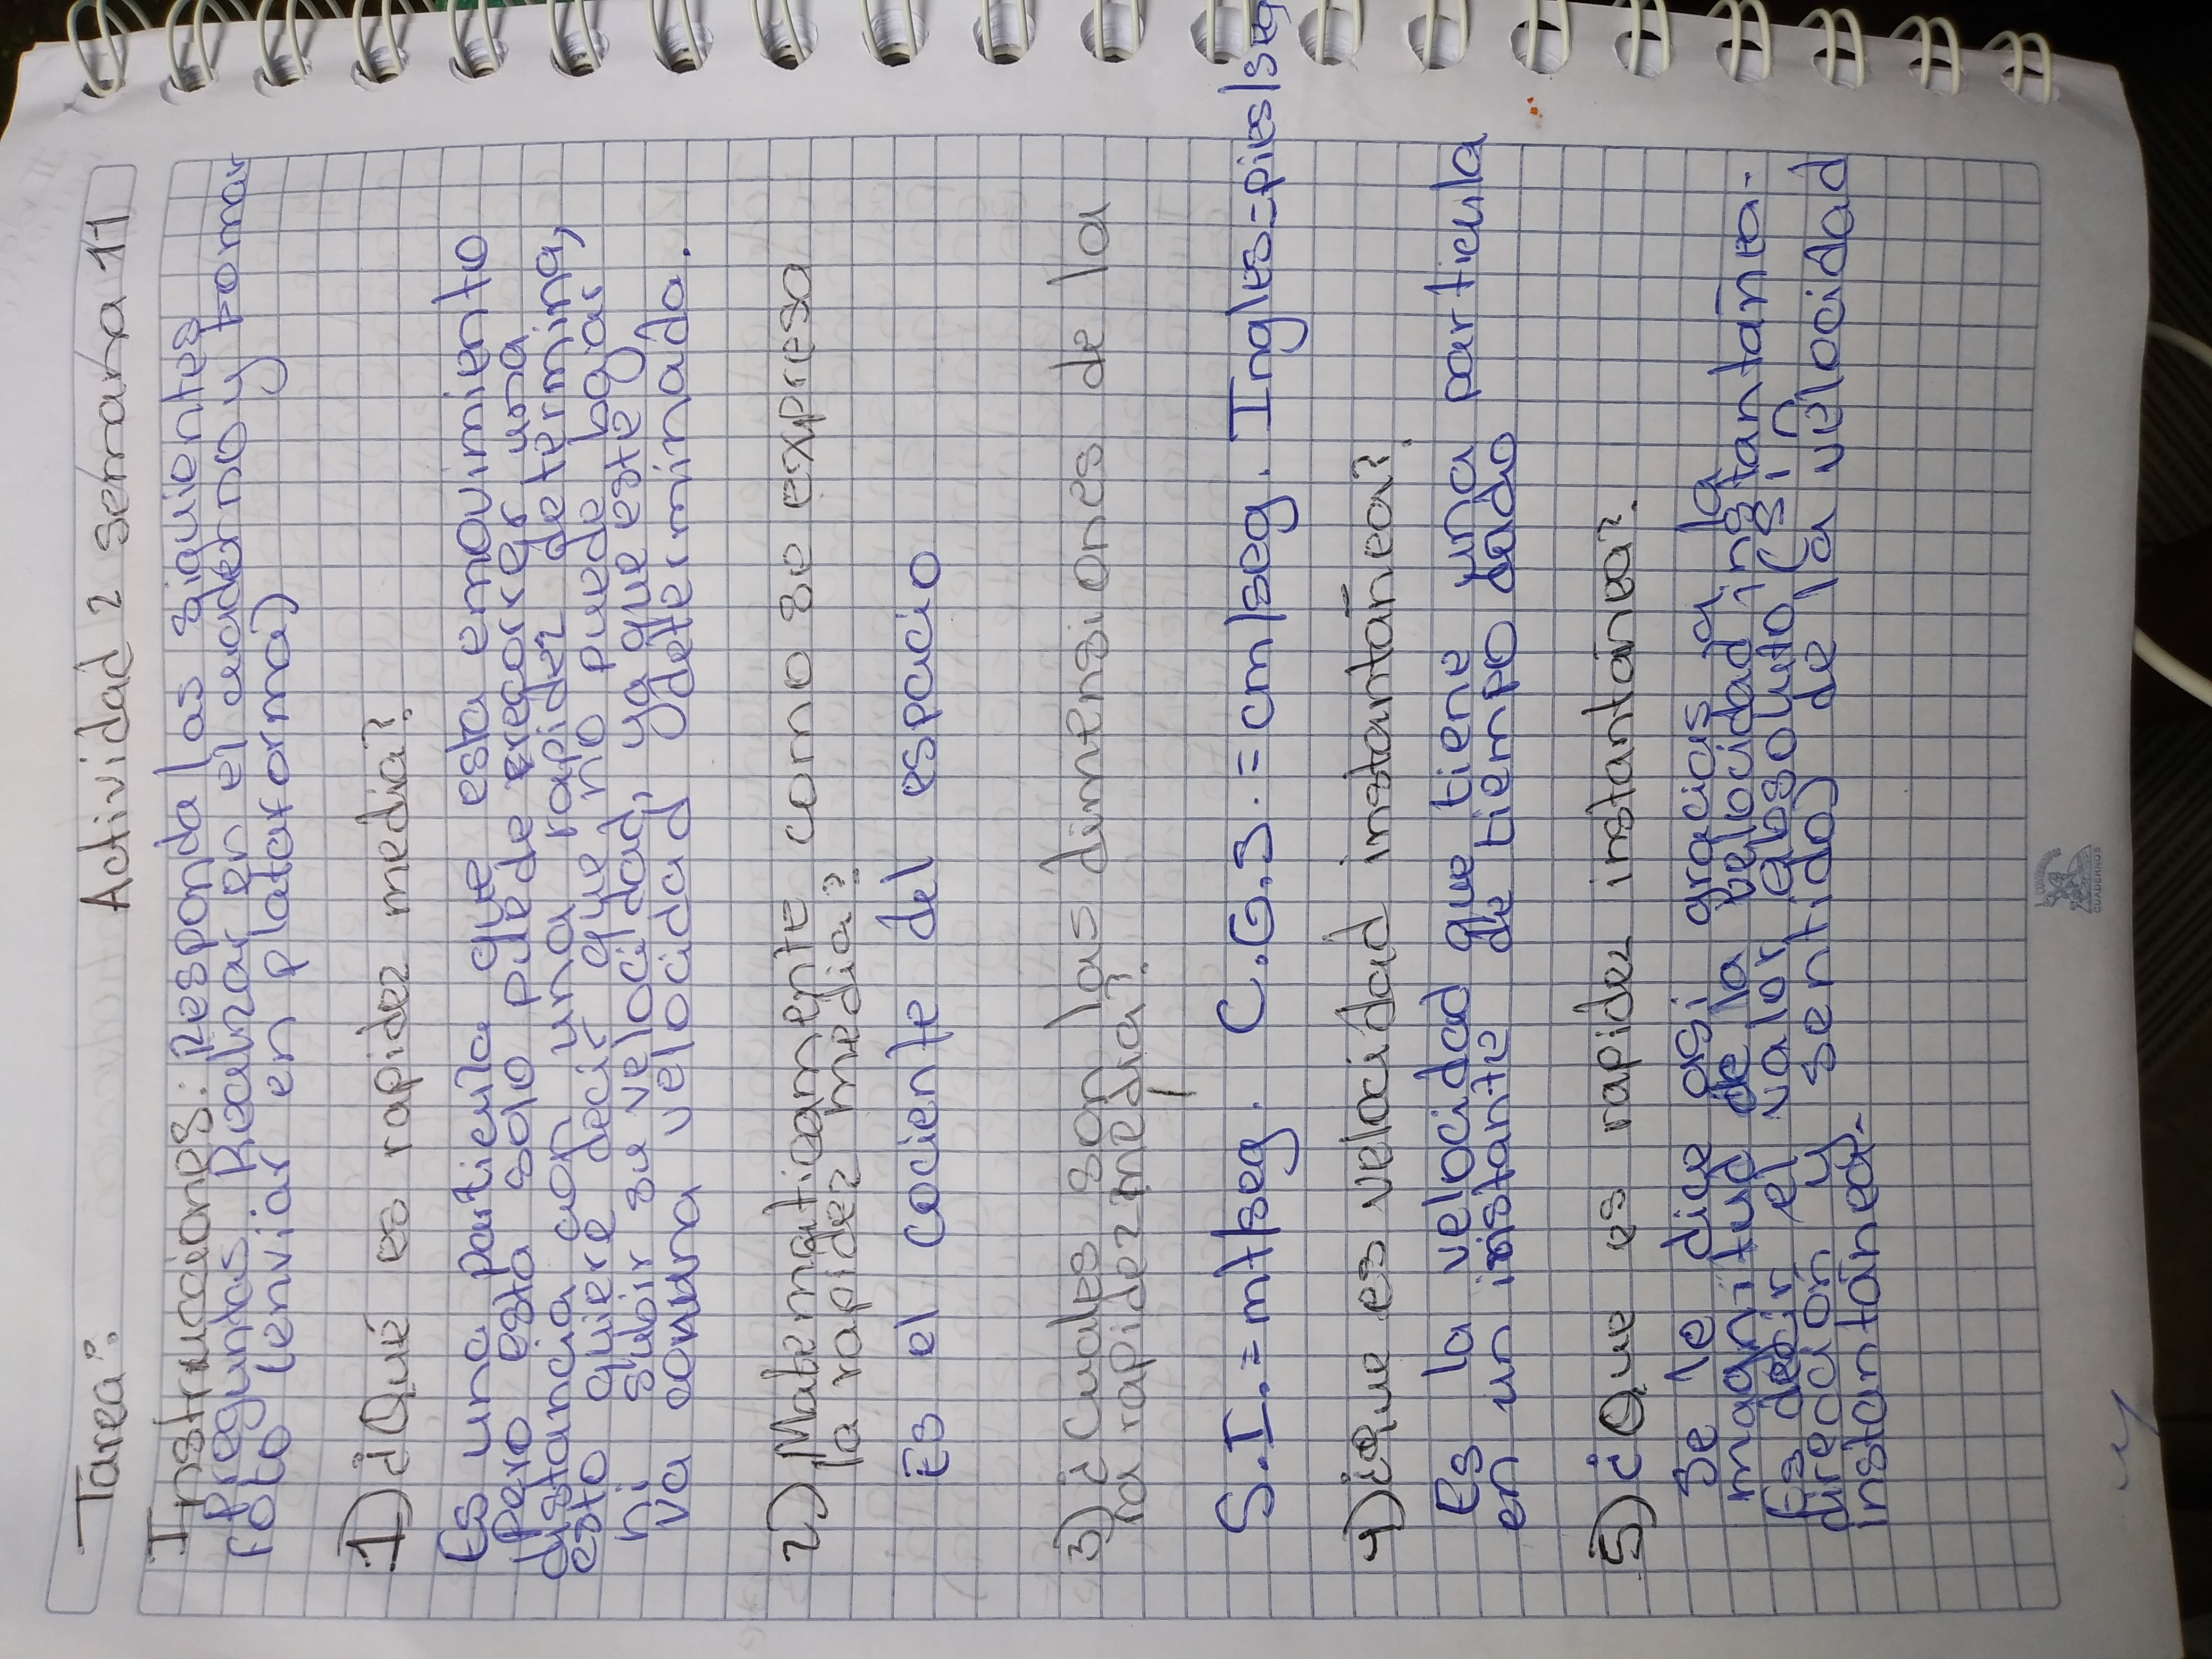 Tarea: Actividad 2 semana 11
Instrucciones: Responda las siguientes
preguntas. Realizar en el cuaderno y tomar
foto (enviar en plataforma)
1) ¿Qué es rapidez media?
Es una particula que esta emovimiento
pero esta solo puede recorrer una
distancia con una rapidez determina,
esto quiere decir que no puede bajar
ni subir su velocidad, ya que este
va con una velocidad determinada.
2) Matematicamente como se expresa
la rapidez media?
Es el cociente del espacio
3) ¿Cuales son las dimensiones de la
la rapidez media?
S.I. = mt/seg. C.G.S. = cm/seg. Ingles = pies/seg
4) ¿que es velocidad instantánea?
Es la velocidad que tiene una particula
en un instante de tiempo dado
5) ¿Que es rapidez instantánea?
Se le dice asi gracias a la
magnitud de la velocidad instantánea-
Es decir el valor absoluto (sin
direción y sentido) de la velocidad
instantánea-
CUADERNOS